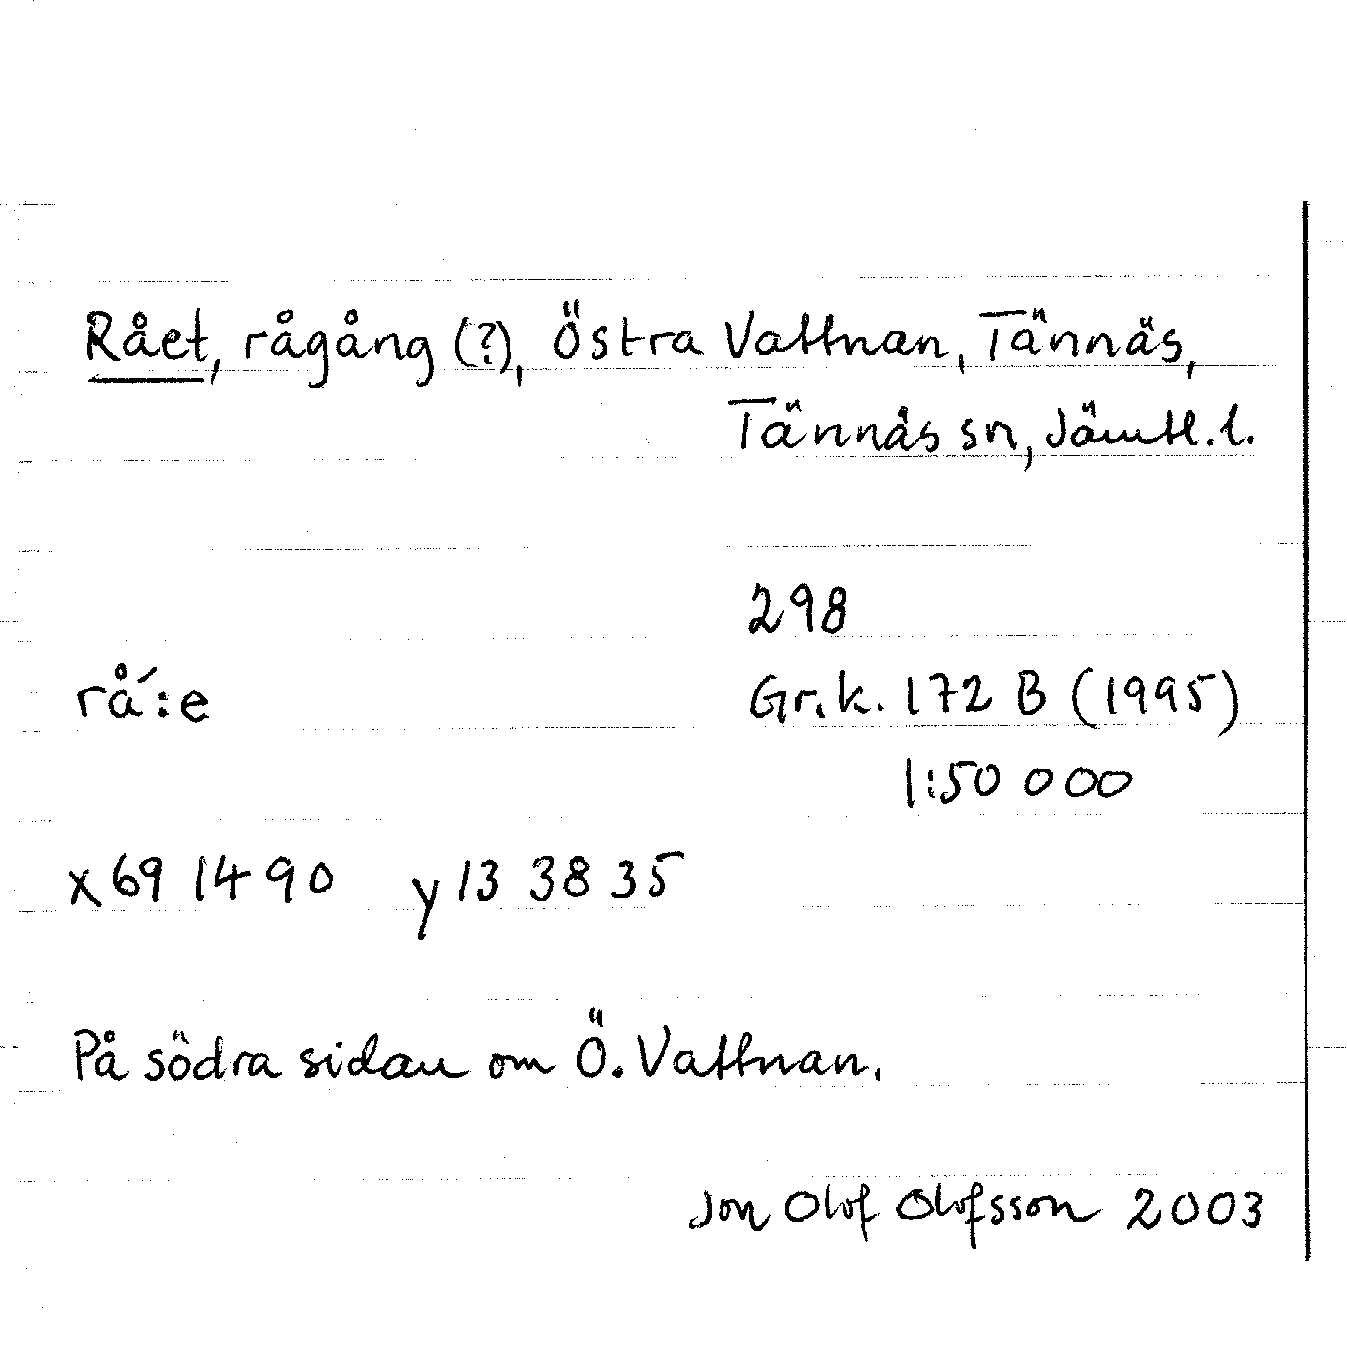 Rået, rågång (?), Östra Vattnan, Tännäs,
Tännäs sn, Jämtl. l.
298
rå´:e Gr.k. 172 B (1995)
1:50 000
x 69 14 90 y 13 38 35
På södra sidan om Ö. Vattnan.
Jon Olof Olofsson 2003